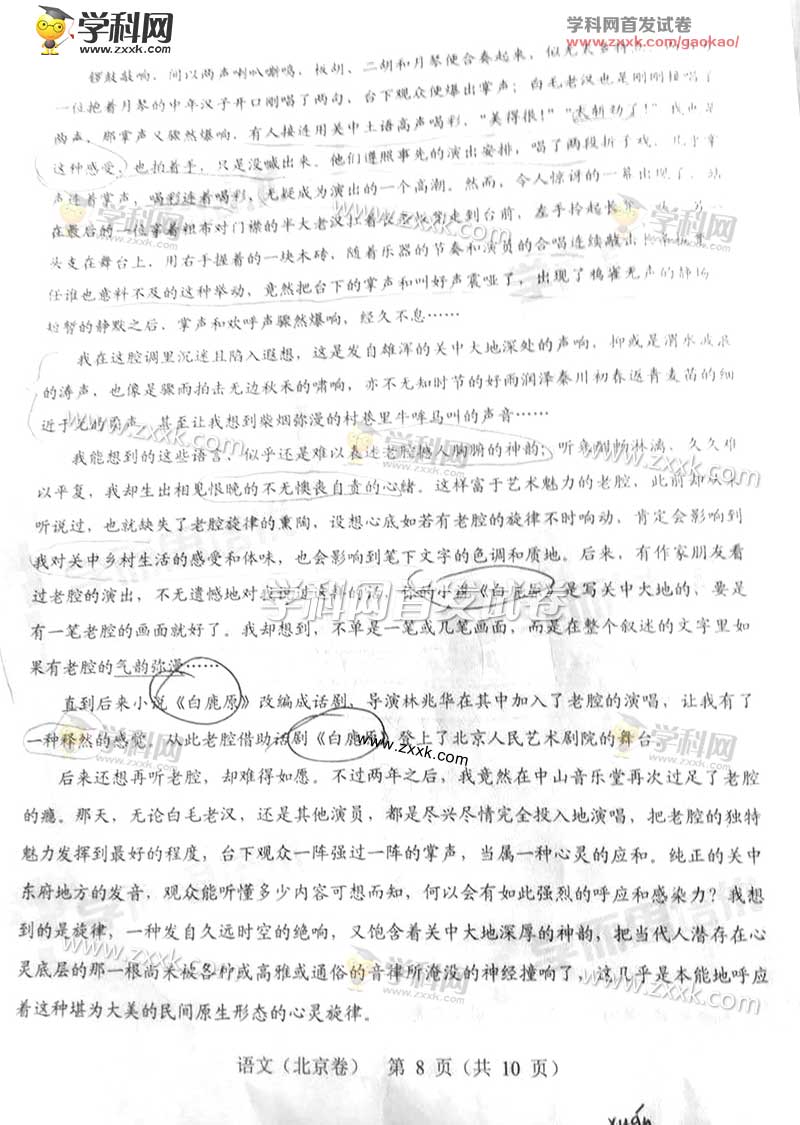 学科网
www.zxxk.com
学科网首发试卷
www.zxxk.com/gaokao/
锣鼓敲响,间以两声喇叭嘶鸣,板胡、二胡和月琴便合奏起来,似无太
一位抱着月琴的中年汉子开口刚唱了两句,台下观众便爆出掌声;白毛老汉也是刚刚接唱了
两声,那掌声又骤然爆响,有人接连用关中土语高声喝彩,“美得很!”“太斩劲了!”我也是
这种感受,也拍着手,只是没喊出来。他们遵照事先的演出安排,唱了两段折子戏,几乎掌
声连着掌声,喝彩连着喝彩,无疑成为演出的一个高潮。然而,令人惊讶的一幕出现了,站
在最后的一位穿着粗布对门襟的半大老汉扛着长条板凳走到台前,左手拎起长
头支在舞台上,用右手握着的一块木砖,随着乐器的节奏和演员的合唱连续敲击
任谁也意料不及的这种举动,竟然把台下的掌声和叫好声震哑了,出现了鸦雀无声的静场
短暂的静默之后,掌声和欢呼声骤然爆响,经久不息……
我在这腔调里沉迷且陷入遐想,这是发自雄浑的关中大地深处的声响,抑或是渭水波浪
的涛声,也像是骤雨拍击无边秋禾的啸响,亦不无知时节的好雨润泽秦川初春返青麦苗的细
近于无的柔声,甚至让我想到柴烟弥漫的村巷里牛哞马叫的声音……
我能想到的这些语言,似乎还是难以表述老腔撼人胸腑的神韵;听来酣畅淋漓,久久难
以平复,我却生出相见恨晚的不无懊丧自责的心绪。这样富于艺术魅力的老腔,此前却从未
听说过,也就缺失了老腔旋律的熏陶,设想心底如若有老腔的旋律不时响动,肯定会影响到
我对关中乡村生活的感受和体味,也会影响到笔下文字的色调和质地。后来,有作家朋友看
过老腔的演出,不无遗憾地对我说过这样的话,你的小说《白鹿原》是写关中大地的,要是
有一笔老腔的画面就好了。我却想到,不单是一笔或几笔画面,而是在整个叙述的文字里如
果有老腔的气韵弥漫……
直到后来小说《白鹿原》改编成话剧,导演林兆华在其中加入了老腔的演唱,让我有了
一种释然的感觉。从此老腔借助话剧《白鹿原》登上了北京人民艺术剧院的舞台。
后来还想再听老腔,却难得如愿。不过两年之后,我竟然在中山音乐堂再次过足了老腔
的瘾。那天,无论白毛老汉,还是其他演员,都是尽兴尽情完全投入地演唱,把老腔的独特
魅力发挥到最好的程度,台下观众一阵强过一阵的掌声,当属一种心灵的应和。纯正的关中
东府地方的发音,观众能听懂多少内容可想而知,何以会有如此强烈的呼应和感染力?我想
到的是旋律,一种发自久远时空的绝响,又饱含着关中大地深厚的神韵,把当代人潜存在心
灵底层的那一根尚未被各种或高雅或通俗的音律所淹没的神经撞响了,这几乎是本能地呼应
着这种堪为大美的民间原生形态的心灵旋律。
语文(北京卷) 第 8 页(共 10 页)
xuán